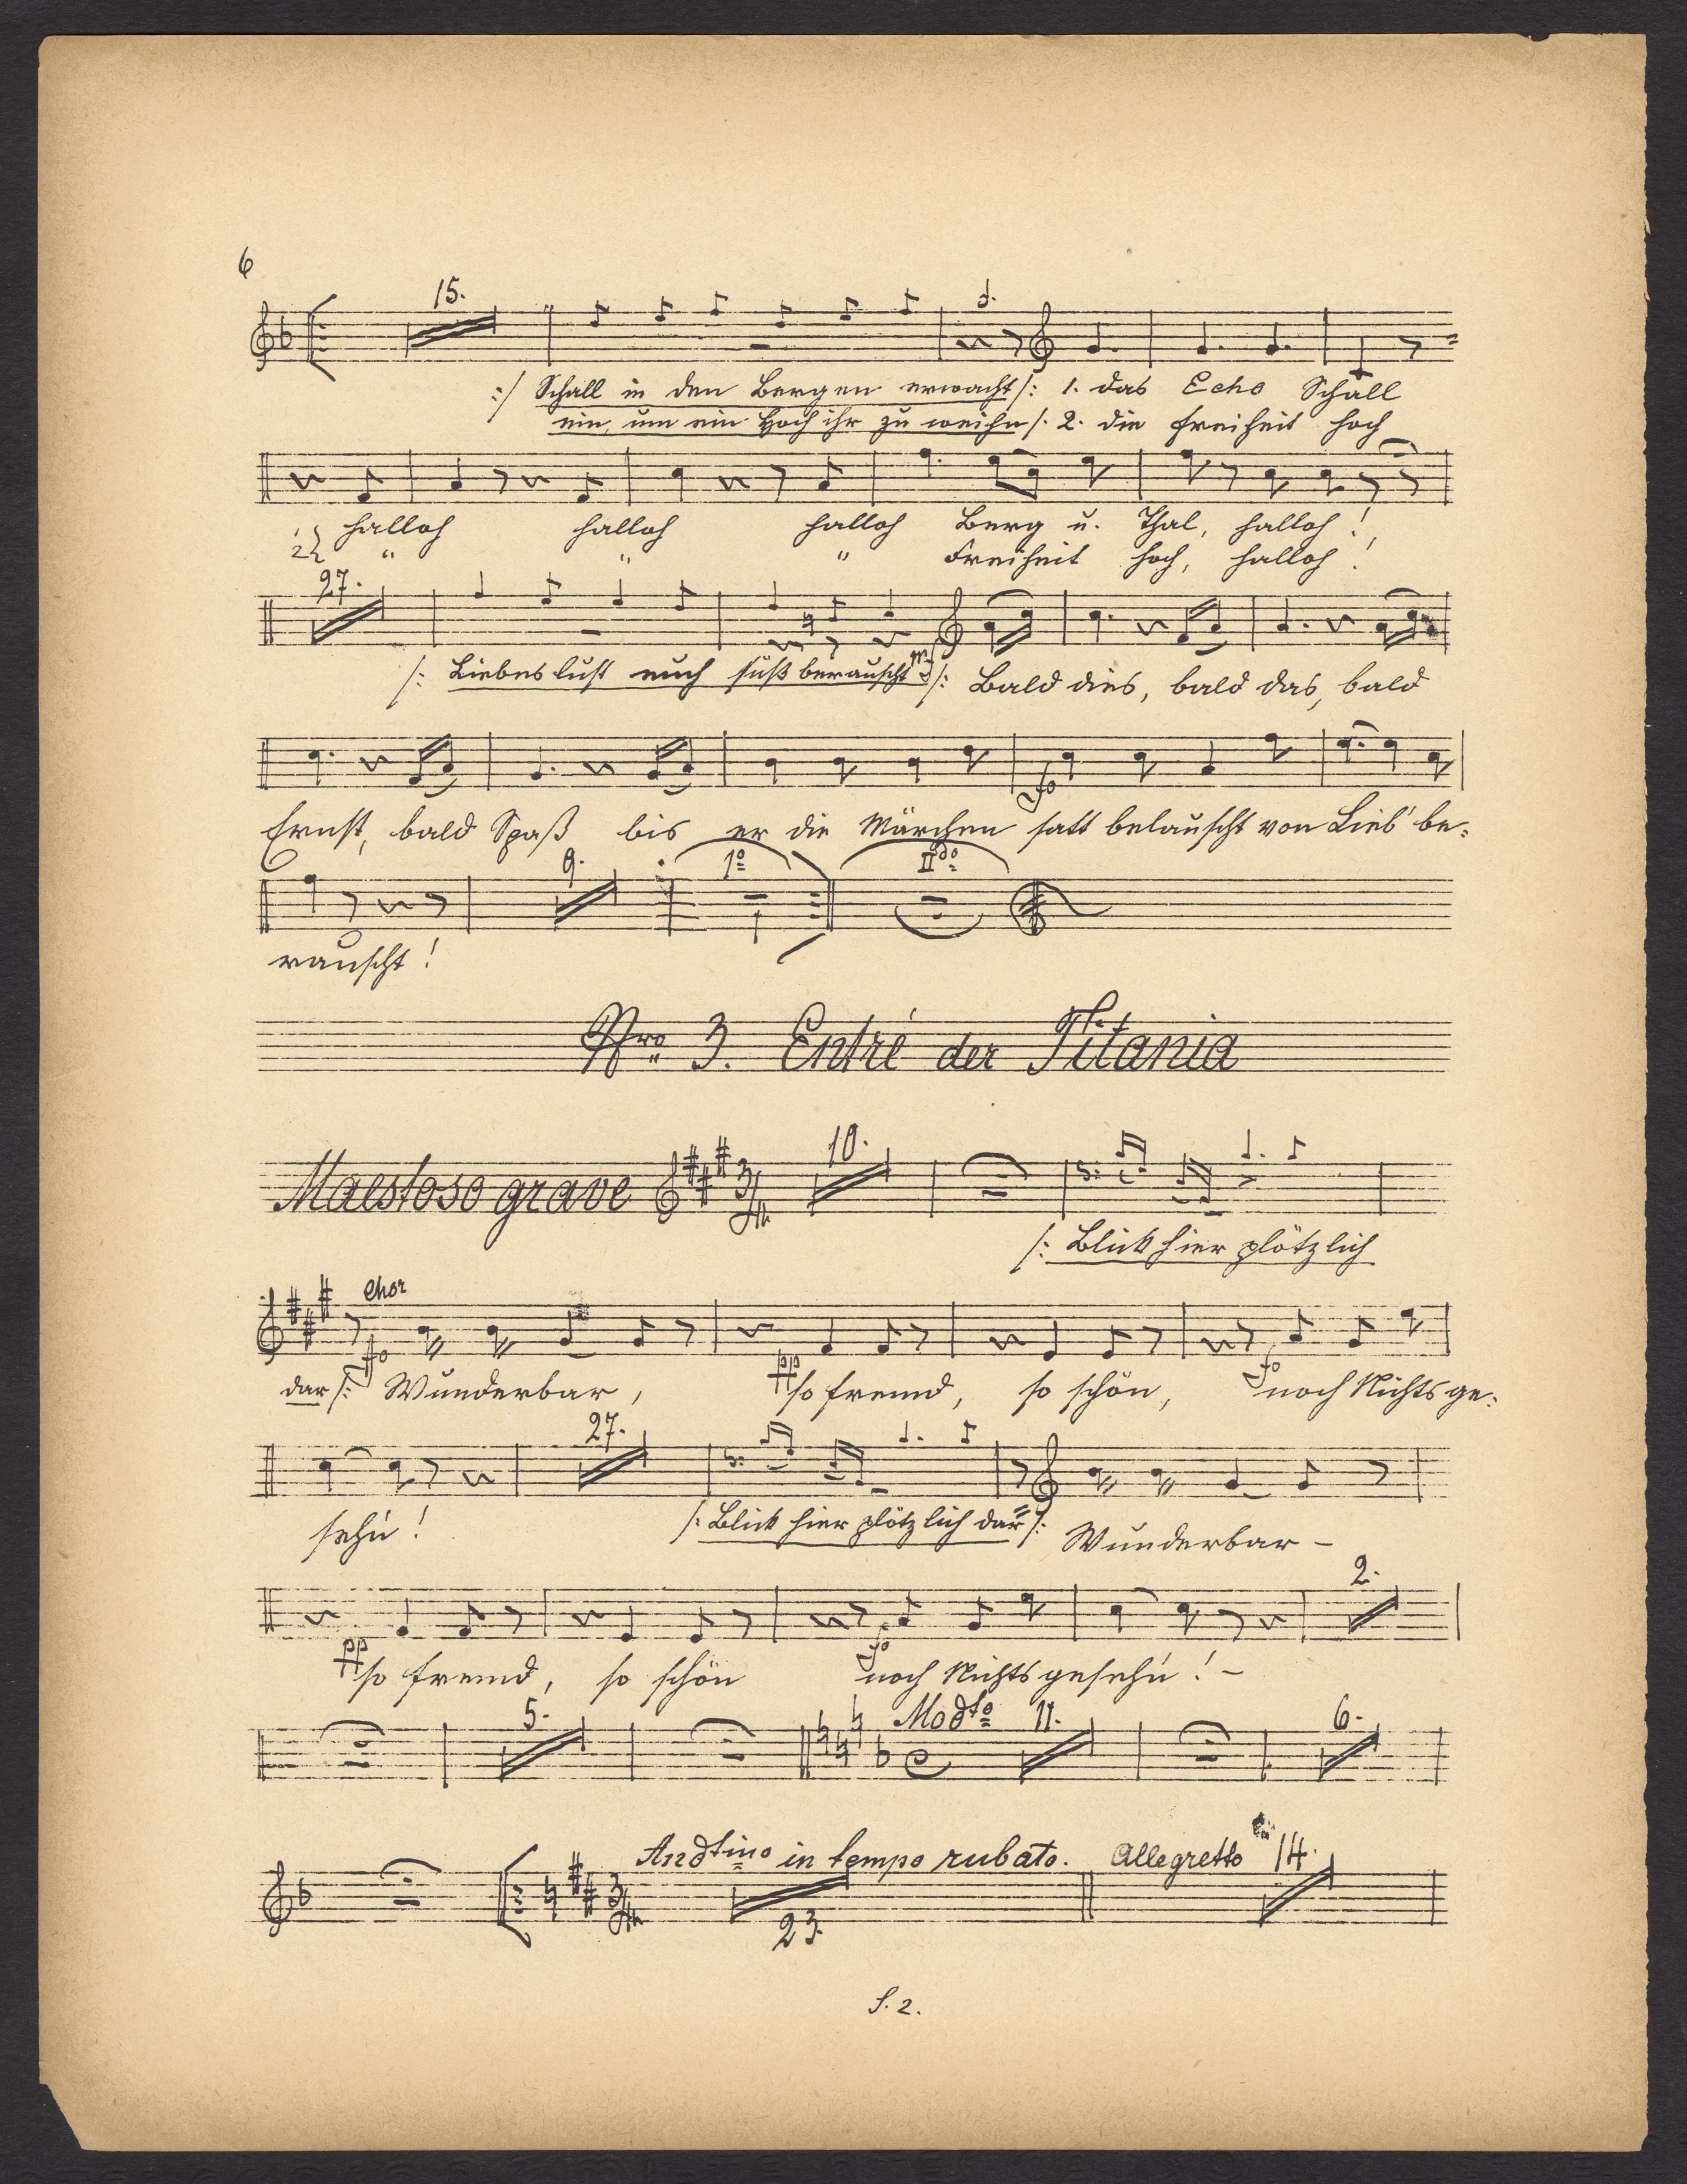 6
15.
:/ Schall in den Bergen erwacht /: 1. das Echo Schall
ein, um ein Hoch ihr zu weihn /: 2. die Freiheit hoch
halloh halloh halloh Berg u. Thal, halloh!
2} " " " Freiheit hoch, halloh!
27.
/: Liebeslust euch süß berauscht /: Bald dies, bald das, bald
Ernst, bald Spaß bis er die Märchen satt belauscht von Lieb' be=
fo
9. 1º IIdo
rauscht!
Nro 3. Entré der Titania
Maestoso grave 3/4 10.
/: Blick hier plötzlich
Chor
dar /: fo Wunderbar, pp so fremd, so schön, fo noch Nichts ge=
27.
sehn! /: Blick hier plötzlich dar /: Wunderbar –
2.
pp so fremd, so schön fo noch Nichts gesehn! –
5. Modto 11. 6.
Andtino in tempo rubato. Allegretto 14.
3/4 23.
S. 2.